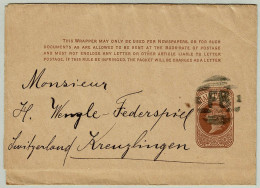 THIS WRAPPER MAY ONLY BE USED FOR NEWSPAPERS, OR FOR SUCH
DOCUMENTS AS ARE ALLOWED TO BE SENT AT THE BOOK-RATE OF POSTAGE
AND MUST NOT ENCLOSE ANY LETTER OR OTHER ARTICLE LIABLE TO LETTER-
POSTAGE. IF THIS RULE BE INFRINGED, THE PACKET WILL BE CHARGED AS A LETTER.
Monsieur
H. Wengle-Federspiel
Switzerland Kreuzlingen